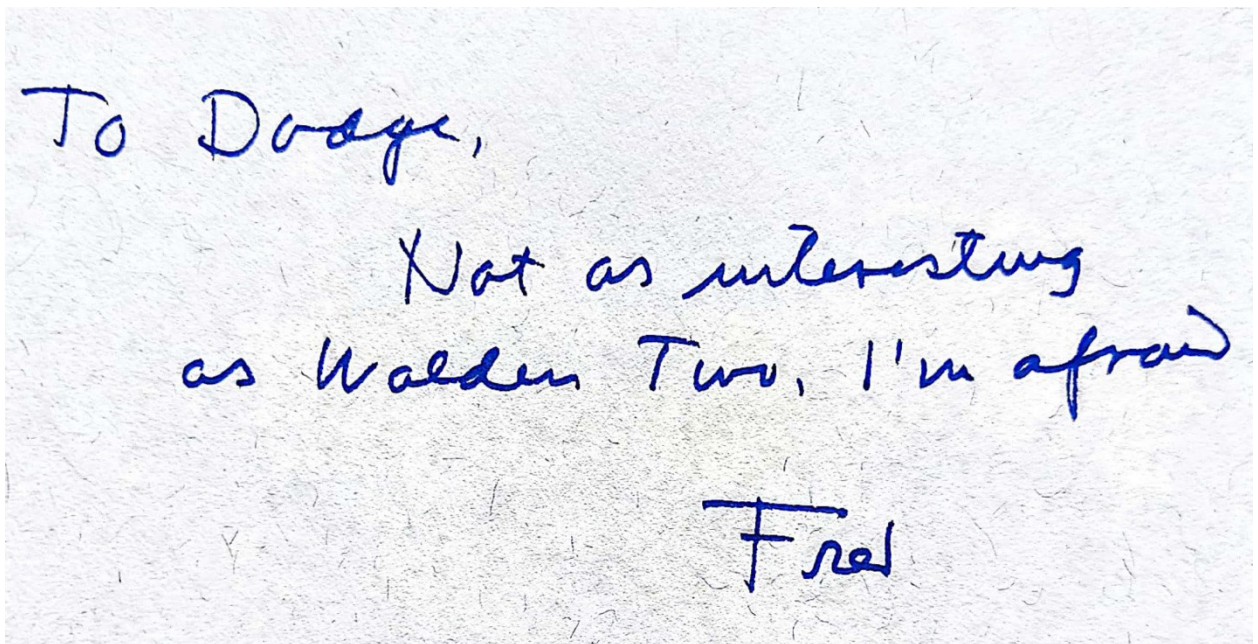 To Dodge,
Not as interesting
as Walden Two, I'm afraid
Fred